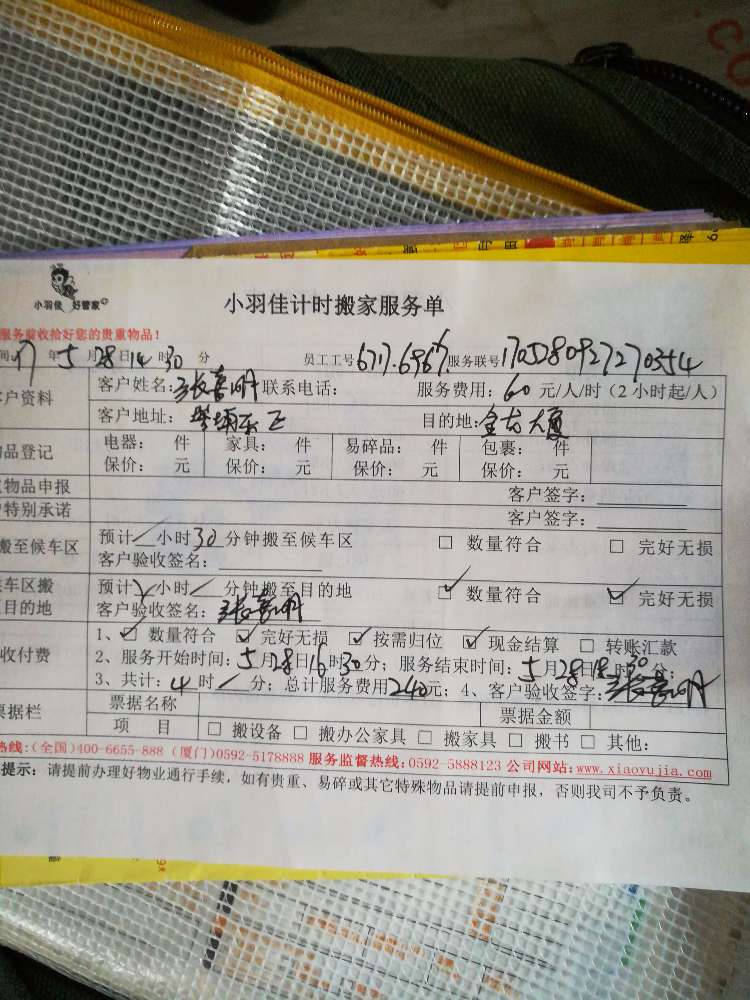 小羽佳 好管家
小羽佳计时搬家服务单
服务前收拾好您的贵重物品!
间 17 年 5 月 28 日 14 时 30 分 员工工号 6717.6967 服务联号 1705280927270354
客户资料 客户姓名: 联系电话: 服务费用: 60 元/人/时(2小时起/人)
客户地址: 目的地: 金龙大厦
物品登记 电器: 件 家具: 件 易碎品: 件 包裹: 件
保价: 元 保价: 元 保价: 元 保价: 元
物品申报 客户签字:
特别承诺 客户签字:
搬至候车区 预计 / 小时 30 分钟搬至候车区 □ 数量符合 □ 完好无损
客户验收签名:
车区搬 预计 小时 / 分钟搬至目的地 ☑ 数量符合 ☑ 完好无损
目的地 客户验收签名:
收付费 1、☑ 数量符合 ☑ 完好无损 ☑ 按需归位 ☑ 现金结算 □ 转账汇款
2、服务开始时间: 5 月 28 日 16 时 30 分; 服务结束时间: 5 月 28 日 时 30 分;
3、共计: 4 时 / 分; 总计服务费用 240 元; 4、客户验收签字:
票据栏 票据名称 票据金额
项 目 □ 搬设备 □ 搬办公家具 □ 搬家具 □ 搬书 □ 其他:
热线:(全国)400-6655-888 (厦门)0592-5178888 服务监督热线:0592-5888123 公司网站:www.xiaoyujia.com
提示: 请提前办理好物业通行手续, 如有贵重、易碎或其它特殊物品请提前申报, 否则我司不予负责。